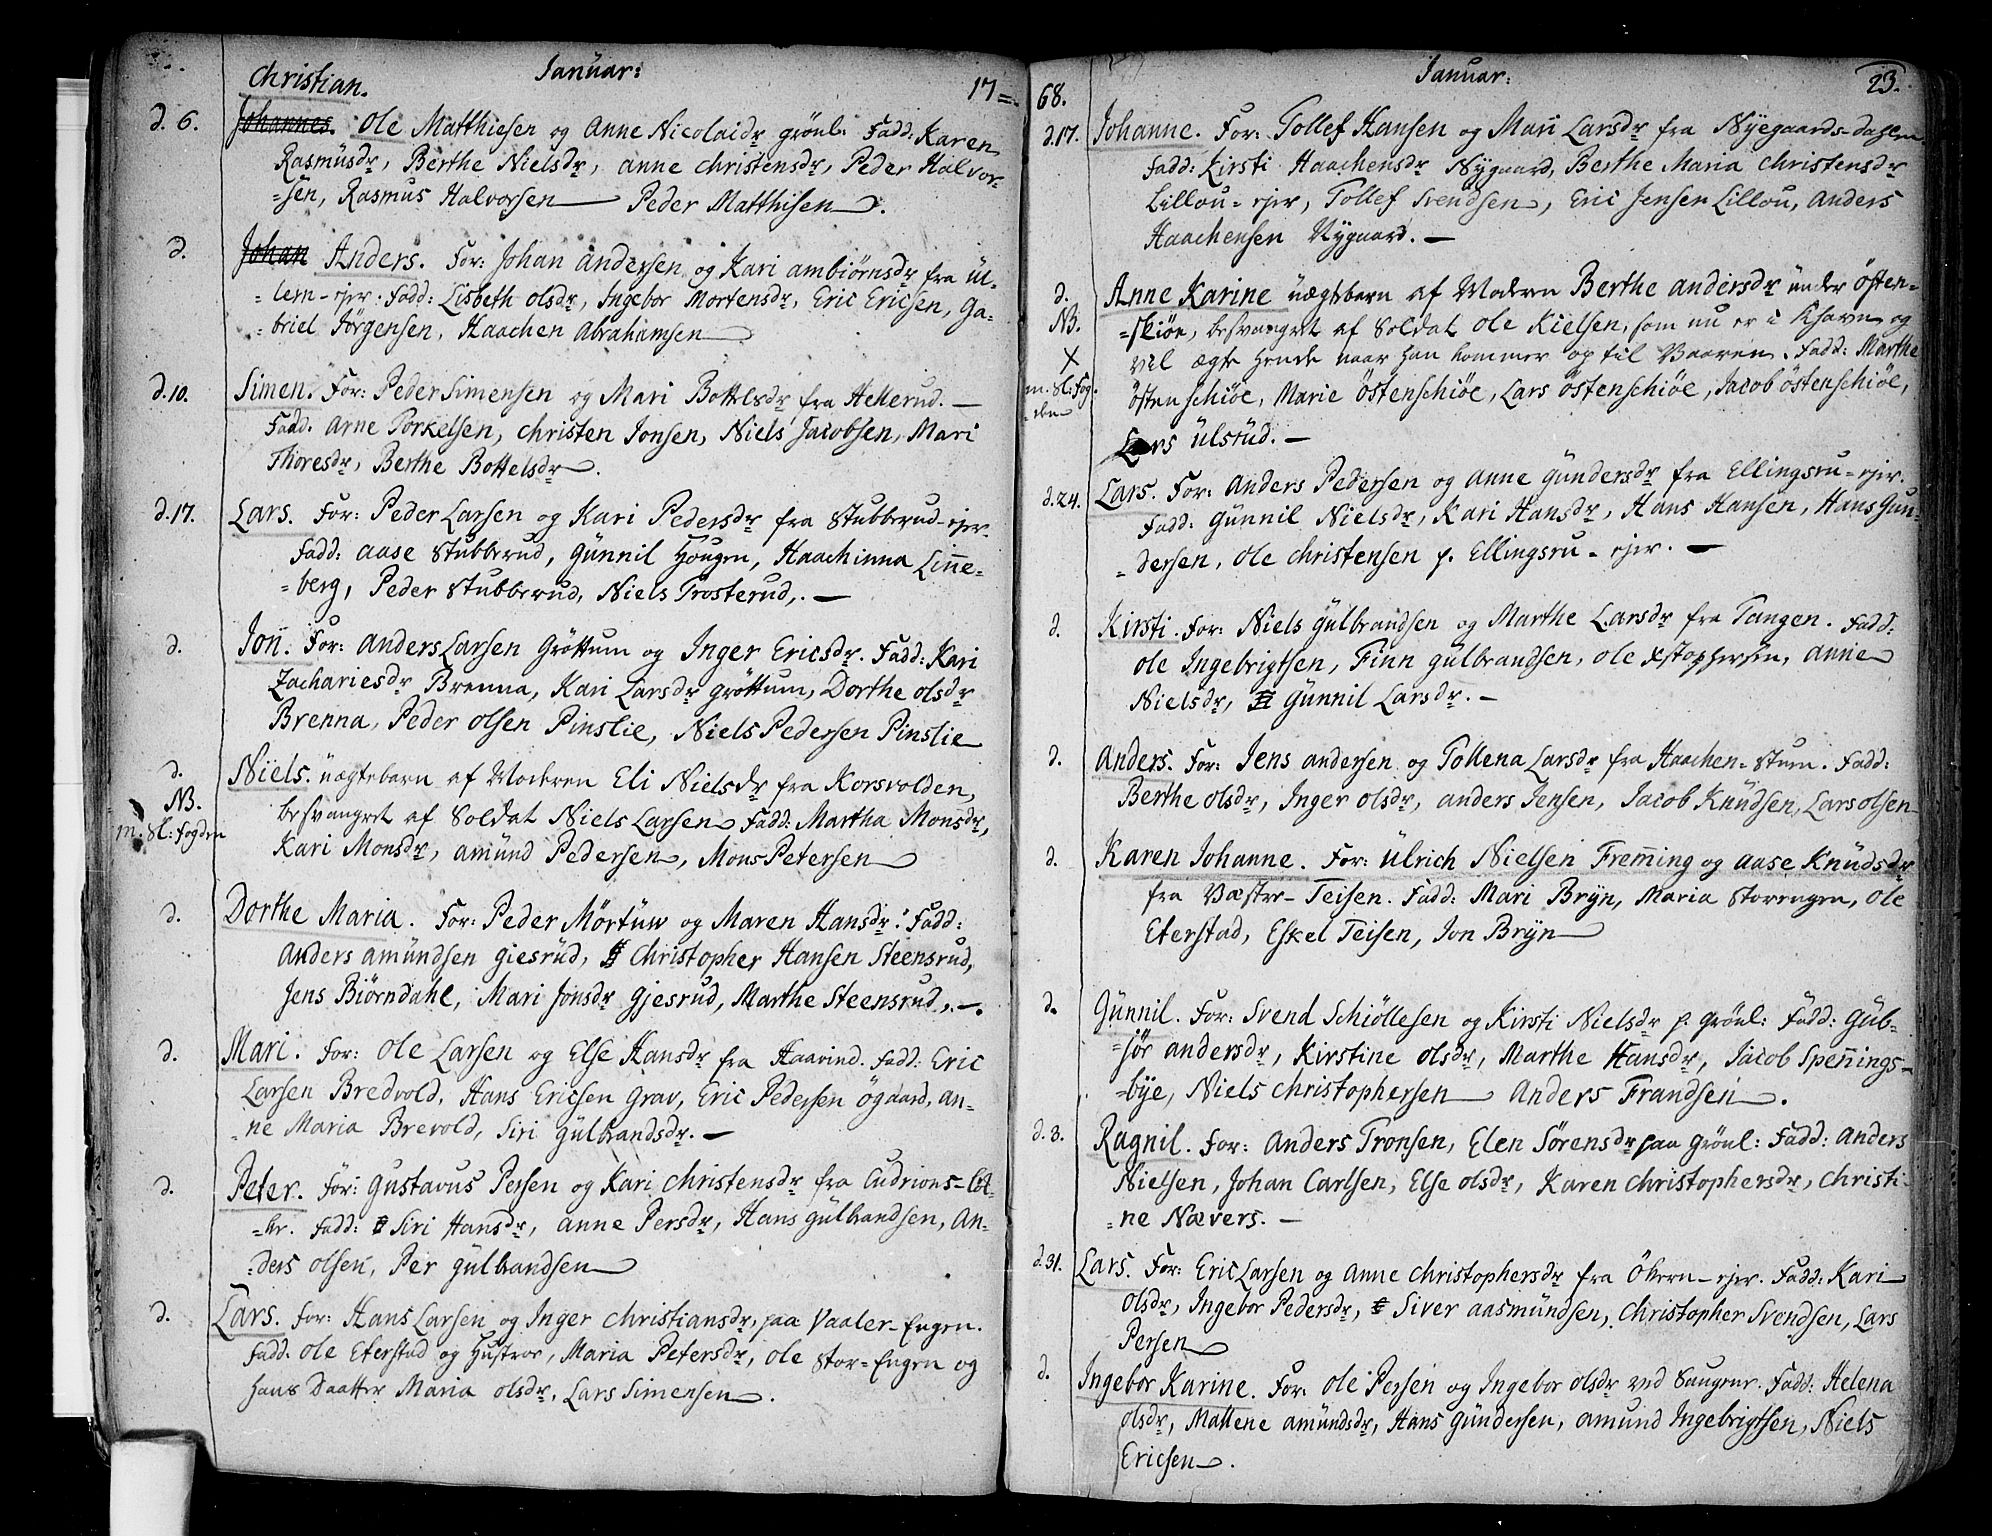 Januar:
17=
Christian.
d. 6. Johannes. Ole Matthiesen og Anne Nicolaidr grönl: Fadd: Karen
Rasmusdr, Berthe Nielsdr, Anne Christensdr, Peder Halvor-
=sen, Rasmus Halvorsen Peder Matthisen.
d. Johan Anders. For: Johan Andersen og Kari Ambiörnsdr fra Ul-
=lern-ejer. Fadd: Lisbeth Olsdr, Ingebor Mortensdr, Eric Ericsen, Ga-
=briel Jörgensen, Haachen Abrahamsen
d. 10. Simen. For: Peder Simensen og Mari Bottelsdr fra Hellerud. —
Fadd. Arne Torkelsen, Christen Jonsen, Niels Jacobsen, Mari
Thoresdr, Berthe Bottelsdr.
d. 17. Lars. For: Peder Larsen og Kari Pedersdr fra Stubberud-ejer.
Fadd: Aase Stubberud, Gunnil Hougen, Haachinna Linne-
=berg, Peder Stubberud, Niels Trosterud,. —
d. Jon. For: Anders Larsen Gröttum og Inger Ericsdr. Fadd: Kari
Zachariesdr Brenna, Kari Larsdr Gröttum, Dorthe Olsdr
Brenna, Peder Olsen Pinslie, Niels Pedersen Pinslie
d. Niels. uægtebarn af Moderen Eli Nielsdr fra Korsvolden,
NB. besvangret af Soldat Niels Larsen Fadd: Martha Monsdr,
m. Sl: fogden Kari Monsdr, Amund Pedersen, Mons Petersen
d. Dorthe Maria. For: Peder Mörtuw og Maren Hansdr: Fadd:
Anders Amundsen Giesrud, Christopher Hansen Steensrud,
Jens Biörndahl, Mari Jonsdr Gjesrud, Marthe Steensrud,. —.
d. Mari. For: Ole Larsen og Else Hansdr fra Haavind. Fadd: Eric
Larsen Bredvold, Hans Ericsen Grav, Eric Pedersen Ögaard, An-
=ne Maria Brevold, Siri Gulbrandsdr. —
d. Peter. For: Gustavus Persen og Kari Christensdr fra Cudrions-Löl-
=kr. Fadd: Siri Hansdr, Anne Persdr, Hans Gulbrandsen, An-
=ders Olsen, Per Gulbrandsen
d. Lars. For: Hans Larsen og Inger Christiansdr, paa Vaaler-Engen.
Fadd. Ole Eterstad og Hustroe, Maria Petersdr, Ole Stor=Engen og
hans Daatter Maria Olsdr, Lars Simensen.
Januar:
23.
68.
d. 17. Johanne. For: Tollef Hansen og Mari Larsdr fra Nyegaards-dahlen
Fadd: Kirsti Haachensdr Nygaard, Berthe Maria Christensdr
Lillou-ejer, Tollef Svendsen, Eric Jensen Lillou, Anders
Haachensen Nygaard. —
d. Anne Karine uægtebarn af Moderen Berthe Andersdr under Östen-
NB. =skiöe, besvangret af Soldat Ole Kielsen, som nu er i Khavn og
X vil ægte hende naar han kommer op til Vaaren. Fadd: Marthe
m. Sl. Fog- Östenschiöe, Marie Östenschiöe, Lars Östenschiöe, Jacob Östenschiöe,
=den
Lars Ulsrud. —
d. 24. Lars. For: Anders Pedersen og Anne Gundersdr fra Ellingsru-ejer.
Fadd: Gunnil Nielsdr, Kari Hansdr, Hans Hansen, Hans Gun-
=dersen, Ole Christensen p. Ellingsru-ejer. —
d. Kirsti. For: Niels Gulbrandsen og Marthe Larsdr fra Tangen. Fadd:
Ole Ingebrigtsen, Finn Gulbrandsen, Ole Xstophersen, Anne
Nielsdr, Gunnil Larsdr. —
d. Anders. For: Jens Andersen og Tollena Larsdr fra Haachen-Stum. Fadd:
Berthe Olsdr, Inger Olsdr, Anders Jensen, Jacob Knudsen, Lars Olsen
d. Karen Johanne. For: Ulrich Nielsen Fremming og Aase Knudsdr
fra Væster-Teisen. Fadd: Mari Bryn, Maria Storengen, Ole
Eterstad, Eskel Teisen, Jon Bryn
d. Gunnil. For: Svend Schiöllesen og Kirsti Nielsdr p. Grönl: Fadd: Gub-
=jör Andersdr, Kirstine Olsdr, Marthe Hansdr, Jacob Spennings-
=bye, Niels Christophersen Anders Frandsen.
d. 3. Ragnil. For: Anders Tronsen, Elen Sörensdr paa Grönl: Fadd: Anders
Nielsen, Johan Carlsen, Else Olsdr, Karen Christophersdr, Christi-
=ne Nævers. —
d. 31. Lars. For: Eric Larsen og Anne Christophersdr fra Ökern-ejer. Fadd: Kari
Olsdr, Ingebor Pedersdr, Siver Aasmundsen, Christopher Svendsen, Lars
Persen
d. Ingebor Karine. For: Ole Persen og Ingebor Olsdr ved Saugene. Fadd: Helena
Olsdr, Maltene Amundsdr, Hans Gundersen, Amund Ingebrigtsen, Niels
Ericsen.